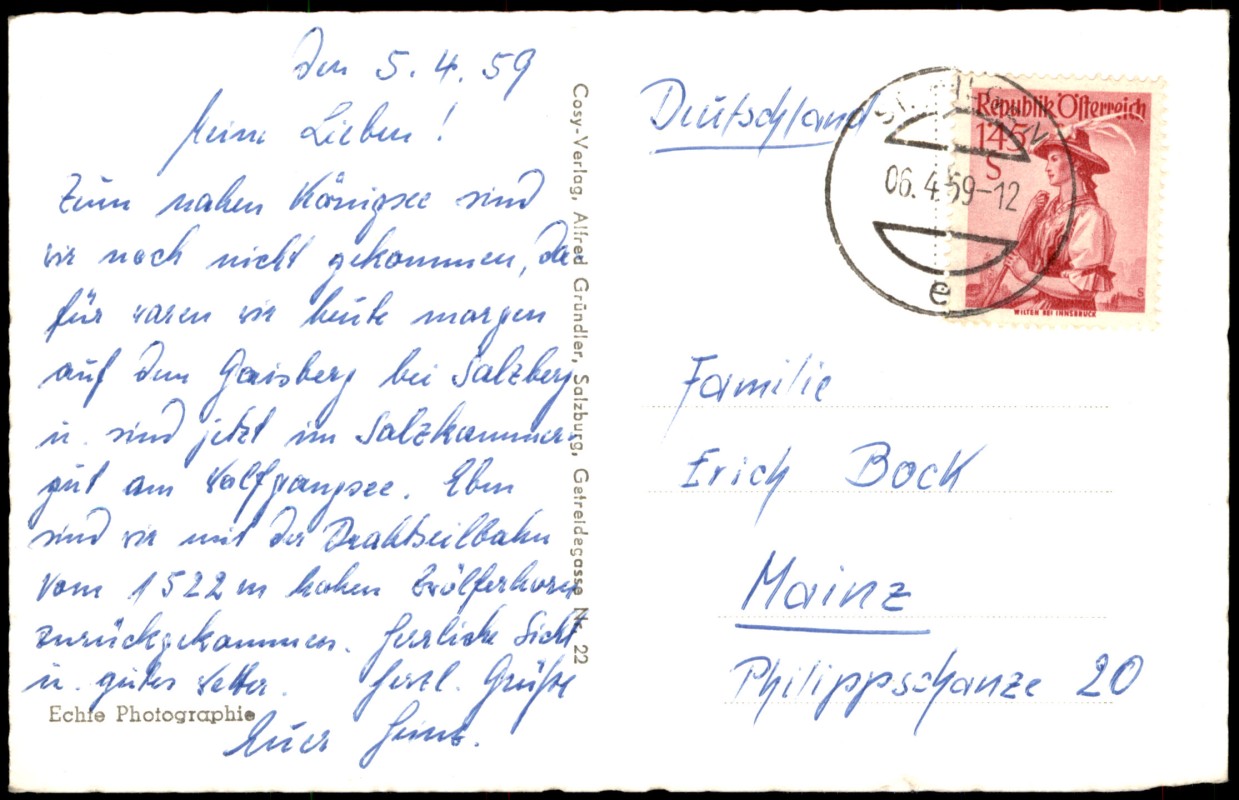 Den 5.4.59
Meine Lieben!
Zum nahen Königsee sind
wir noch nicht gekommen, da
für waren wir heute morgen
auf dem Gaisberg bei Salzberg
u. sind jetzt im Salzkammer-
gut am Wolfgangsee. Eben
sind wir mit der Drahtseilbahn
vom 1522 m hohen Zwölferhorn
zurückgekommen. Herrliche Sicht
u. gutes Wetter. Herzl. Grüße
Euer Heinz.
Echte Photographie
Cosy-Verlag, Alfred Gründler, Salzburg, Getreidegasse Nr. 22
Deutschland
ST. GILGEN
06.4.59-12
e
Republik Österreich
145
S
WILTEN BEI INNSBRUCK
S
Familie
Erich Bock
Mainz
Philippschanze 20